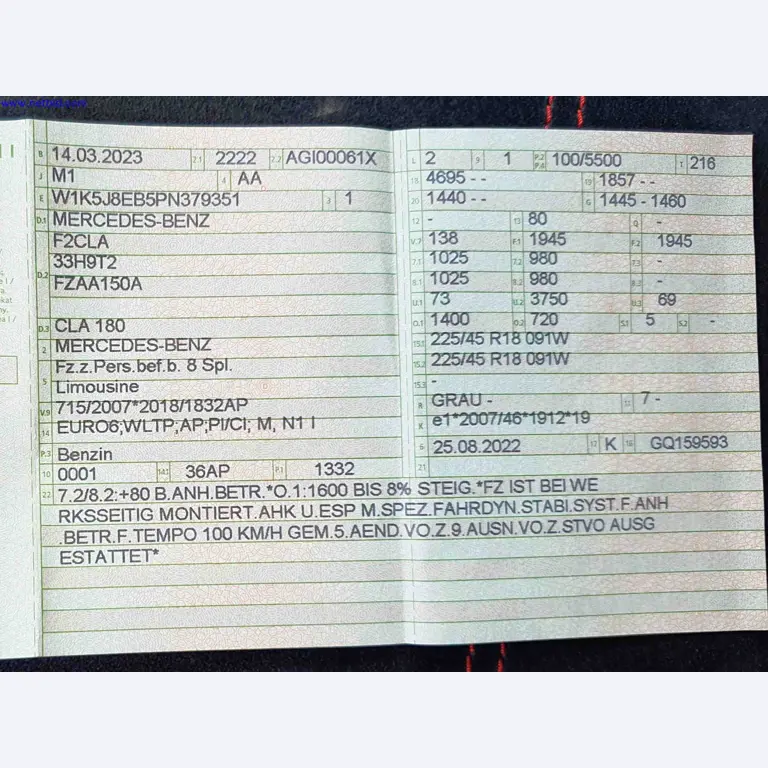 B 14.03.2023 2.1 2222 2.2 AGI00061X L 2 9 1 P.2 P.4 100/5500 T 216
J M1 4 AA 18 4695 - - 19 1857 - -
E W1K5J8EB5PN379351 3 1 20 1440 - - G 1445 - 1460
D.1 MERCEDES-BENZ 12 - 13 80 Q -
F2CLA V.7 138 F.1 1945 F.2 1945
D.2 33H9T2 7.1 1025 7.2 980 7.3 -
FZAA150A 8.1 1025 8.2 980 8.3 -
U.1 73 U.2 3750 U.3 69
D.3 CLA 180 O.1 1400 O.2 720 S.1 5 S.2 -
2 MERCEDES-BENZ 15.1 225/45 R18 091W
5 Fz.z.Pers.bef.b. 8 Spl. 15.2 225/45 R18 091W
Limousine 15.3 -
V.9 715/2007*2018/1832AP R GRAU - 11 7 -
14 EURO6;WLTP;AP;PI/CI; M, N1 I K e1*2007/46*1912*19
P.3 Benzin 6 25.08.2022 17 K 16 GQ159593
10 0001 14.1 36AP P.1 1332 21
22 7.2/8.2:+80 B.ANH.BETR.*O.1:1600 BIS 8% STEIG.*FZ IST BEI WE
RKSSEITIG MONTIERT.AHK U.ESP M.SPEZ.FAHRDYN.STABI.SYST.F.ANH
.BETR.F.TEMPO 100 KM/H GEM.5.AEND.VO.Z.9.AUSN.VO.Z.STVO AUSG
ESTATTET*